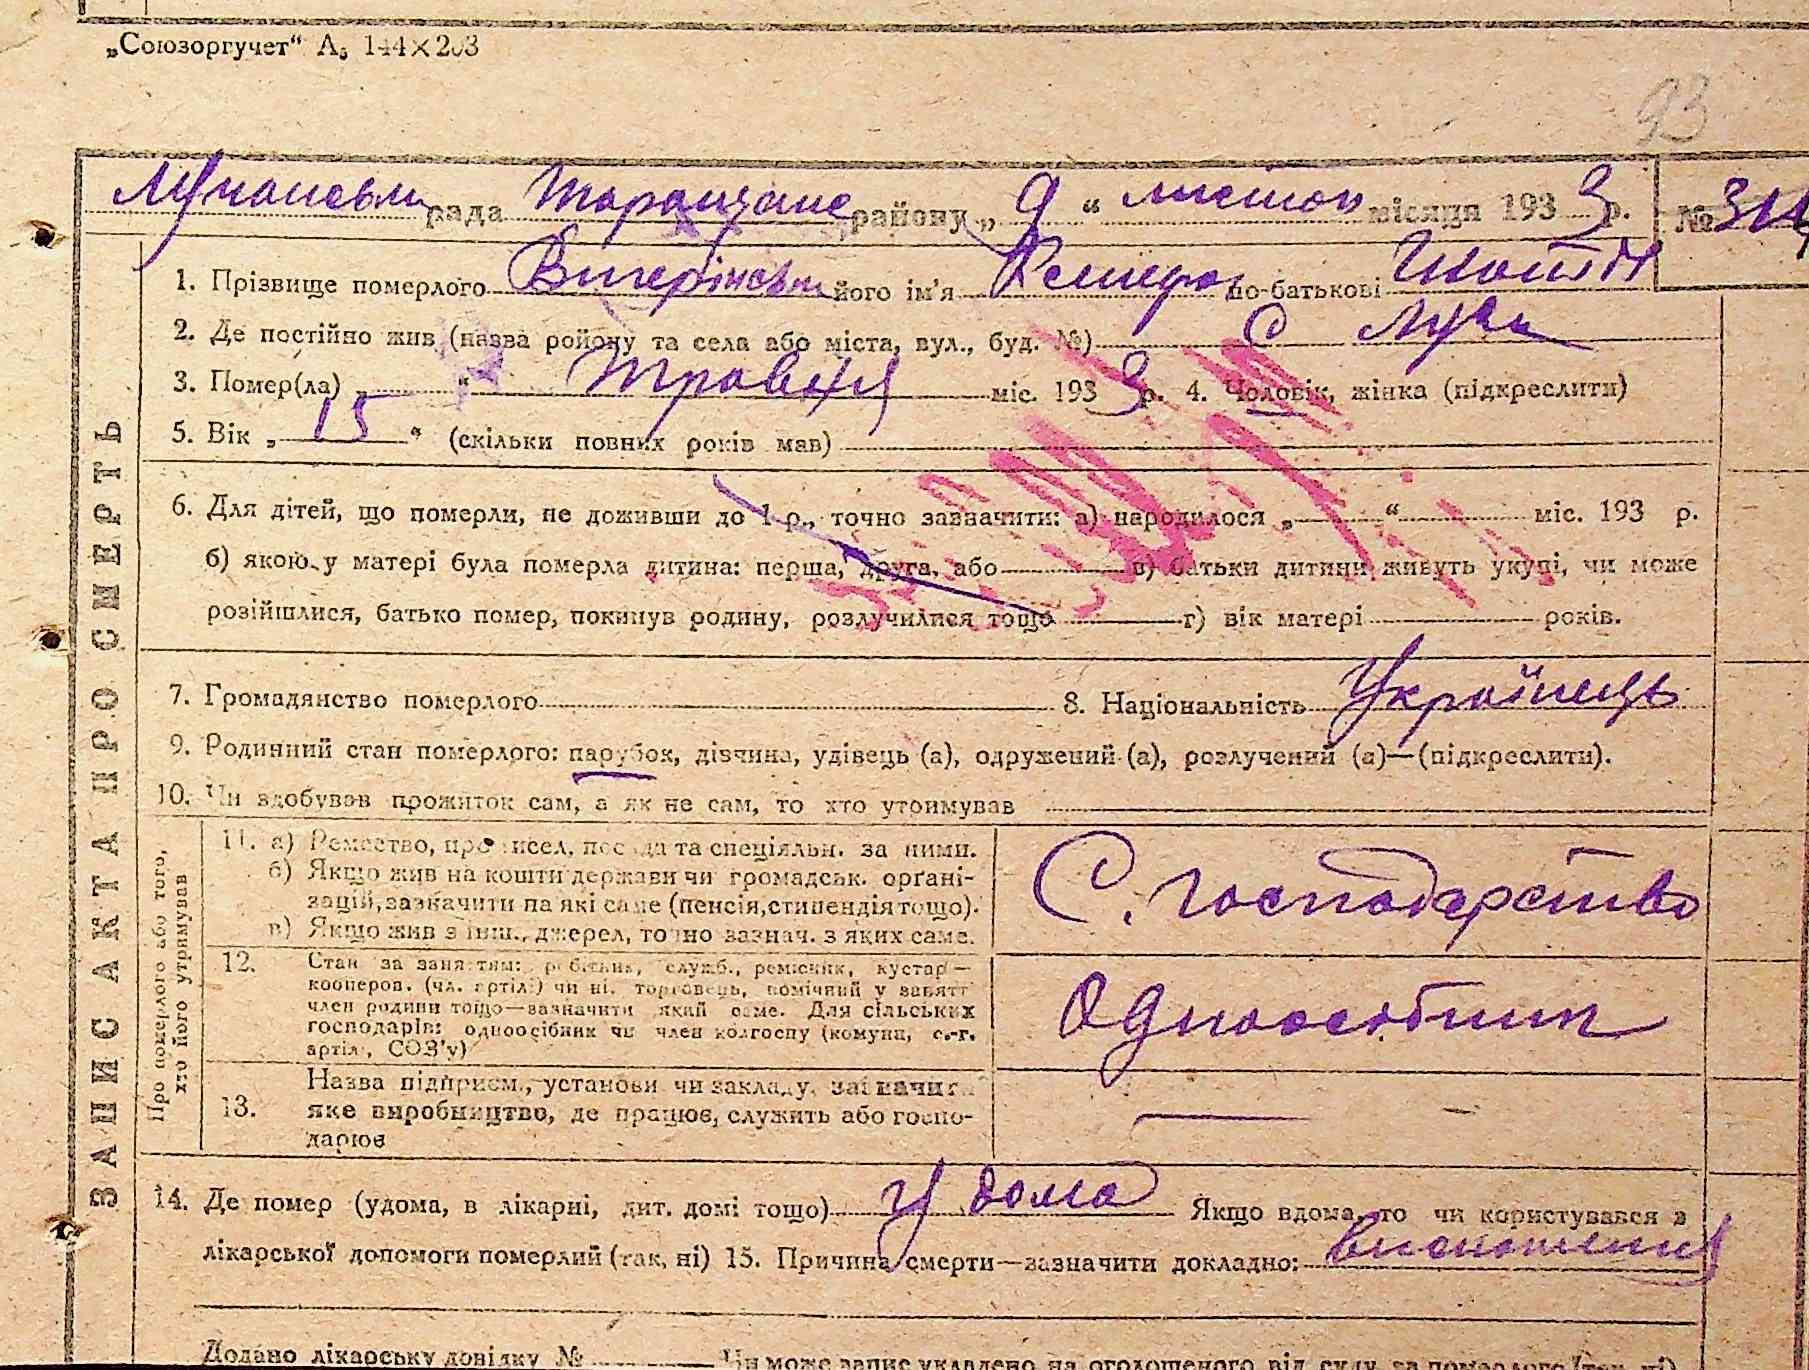 „Союзоргучет“ А₅ 144×203
93
рада районy „ 9 “ листоп місяця 193 3 р. № 314
1. Прізвище померлого його ім'я по-батькові
2. Де постійно жив (назва району та села або міста, вул., буд. №) с
3. Помер(ла) „ “ Травня міс. 193 3 р. 4. Чоловік, жінка (підкреслити)
5. Вік „ 15 “ (скільки повних років мав)
6. Для дітей, що померли, не доживши до 1 р., точно зазначити: а) народилося „ “ міс. 193 р.
б) якою у матері була померла дитина: перша, друга, або в) батьки дитини живуть укупі, чи може
розійшлися, батько помер, покинув родину, розлучилися тощо г) вік матері років.
7. Громадянство померлого 8. Національність Українець
9. Родинний стан померлого: парубок, дівчина, удівець (а), одружений (а), розлучений (а)—(підкреслити).
10. Чи здобував прожиток сам, а як не сам, то хто утримував
ЗАПИС АКТА ПРО СМЕРТЬ
Про померлого або того,
хто його утримував
11. а) Ремество, промисел, посада та спеціяльн. за ними.
б) Якщо жив на кошти держави чи громадськ. орґані-
зацій, зазначити на які саме (пенсія, стипендія тощо).
в) Якщо жив з інш., джерел, точно зазнач. з яких саме.
С. господарство
12. Стан за заняттям: робітник, служб., ремісник, кустар—
кооперов. (чл. артілі) чи ні, торговець, помічний у занятт
член родини тощо—зазначити який саме. Для сільських
господарів: одноосібник чи член колгоспу (комуни, с.-г.
артілі, СОЗ'у)
Одноосібник
13. Назва підприєм., установи чи закладу, зазначити
яке виробництво, де працює, служить або госпо-
дарює
14. Де помер (удома, в лікарні, дит. домі тощо) у дома Якщо вдома, то чи користувався з
лікарської допомоги померлий (так, ні) 15. Причина смерти—зазначити докладно: виснаження
Додано лікарську довідку № Чи може запис укладено на оголошеного від суду за померлого (так, ні)